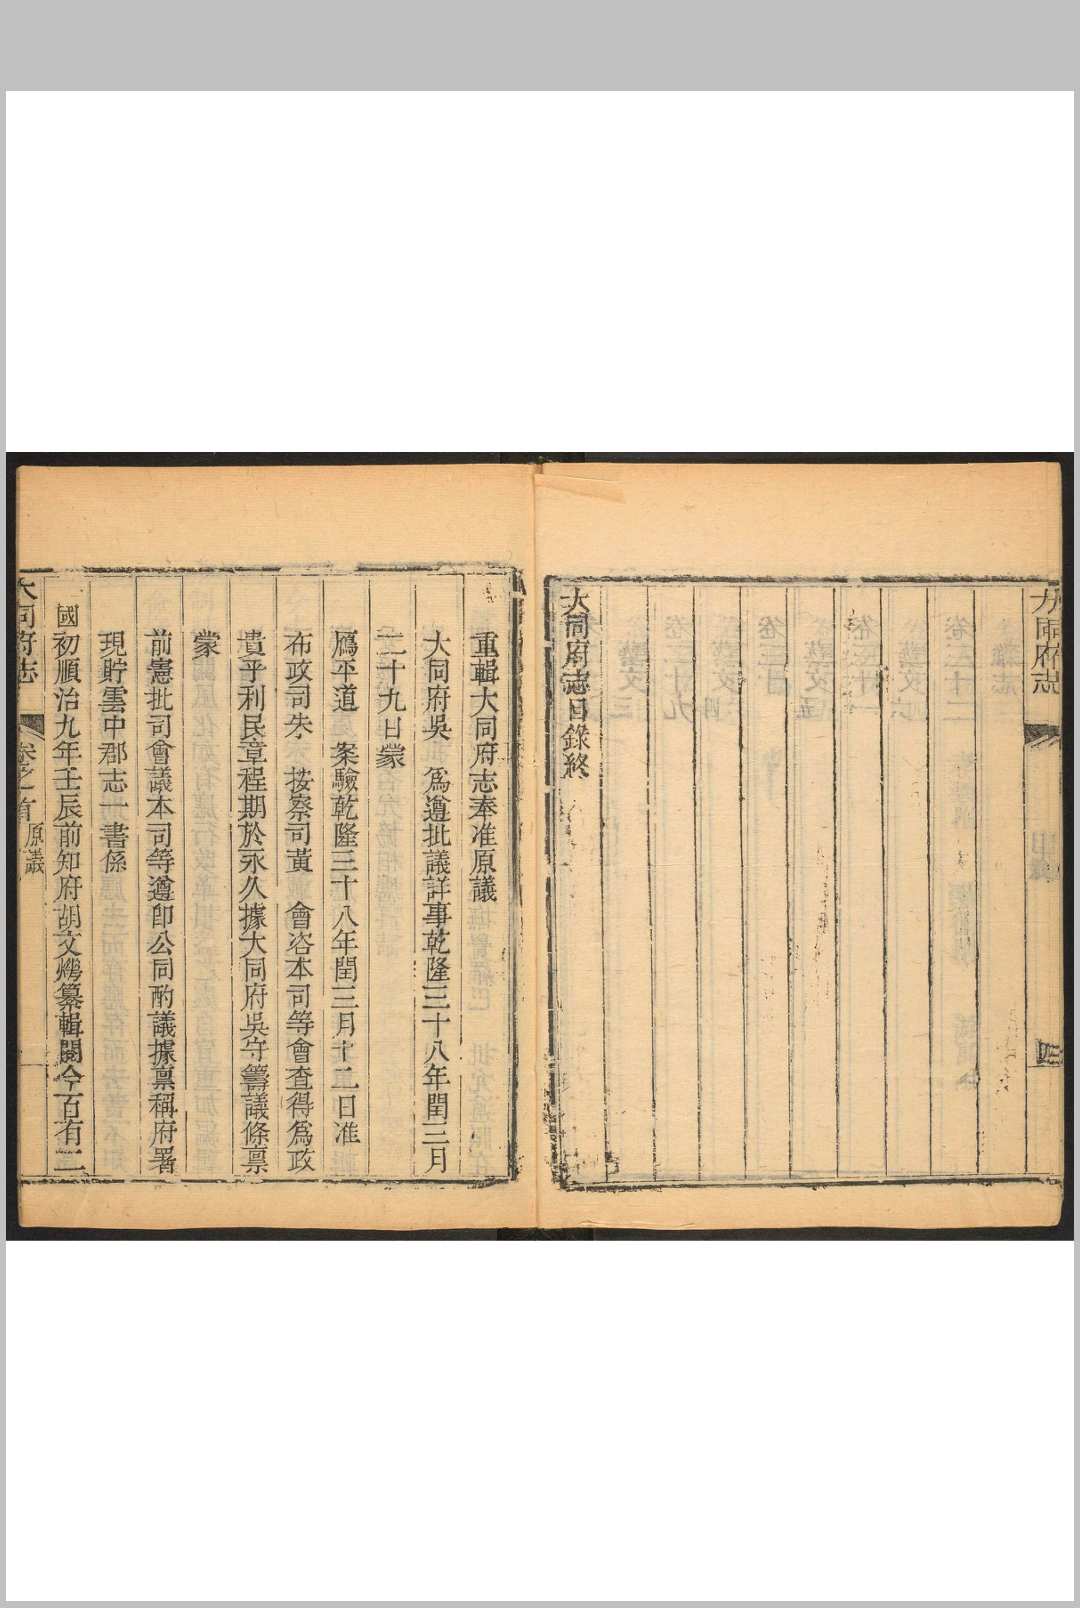 大同府志
大同府志目錄終
重輯大同府志奉准原議
大同府吳 為遵批議詳事乾隆三十八年閏三月
二十九日蒙
鴈平道 案驗乾隆三十八年閏三月十二日准
布政司朱 按察司黃 會咨本司等會查得為政
貴乎利民章程期於永久據大同府吳守籌議條稟
蒙
前憲批司會議本司等遵即公同酌議據稟稱府署
現貯雲中郡志一書係
國初順治九年壬辰前知府胡文燁纂輯閱今百有二
大同府志 卷之首 原議 一